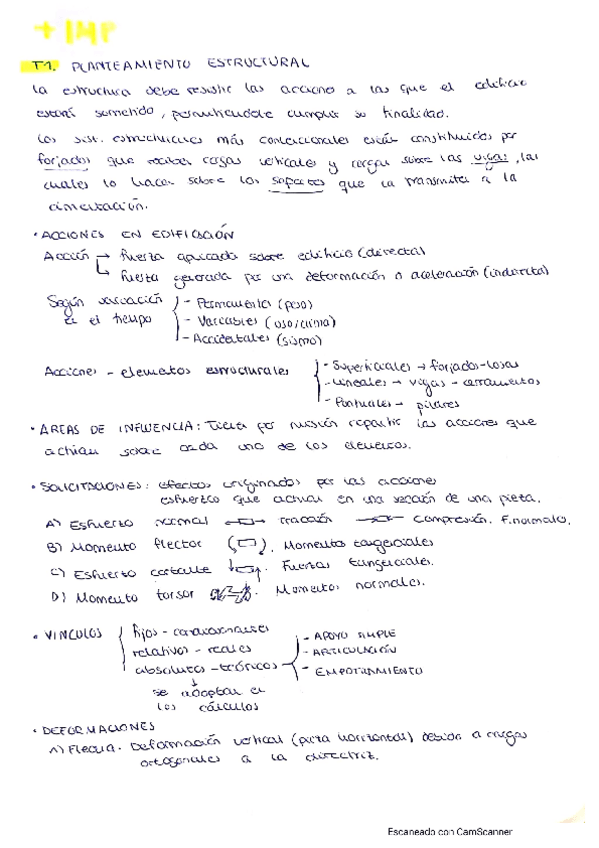 + IMP
T1. PLANTEAMIENTO ESTRUCTURAL
La estructura debe resistir las acciones a las que el edificio
estará sometido, permitiéndole cumplir su finalidad.
Los sist. estructurales más convencionales están constituidos por
forjados que reciben cargas verticales y cargan sobre las vigas, las
cuales lo hacen sobre los soportes que la transmiten a la
cimentación.
· ACCIONES EN EDIFICACIÓN
Acción → fuerza aplicada sobre edificio (directa)
↳ fuerza generada por una deformación o aceleración (indirecta)
Según variación - Permanente (peso)
en el tiempo - Variables (uso/clima)
- Accidentales (sismo)
Acciones - elementos estructurales - Superficiales → forjados-losas
- Lineales → vigas - cerramientos
- Puntuales → pilares
· AREAS DE INFLUENCIA: Tienen por misión repartir las acciones que
actúan sobre cada uno de los elementos.
· SOLICITACIONES: efectos originados por las acciones
esfuerzo que actúa en una sección de una pieza.
A) Esfuerzo normal tracción compresión. F. normales.
B) Momento flector. Momentos tangenciales
C) Esfuerzo cortante. Fuerzas tangenciales.
D) Momento torsor. Momentos normales.
· VINCULOS fijos -
relativos - reales
absolutos - teóricos - APOYO SIMPLE
- ARTICULACIÓN
- EMPOTRAMIENTO
se adoptan en
los cálculos
· DEFORMACIONES
A) Flecha. Deformación vertical (pieza horizontal) debido a cargas
ortogonales a la directriz.
Escaneado con CamScanner